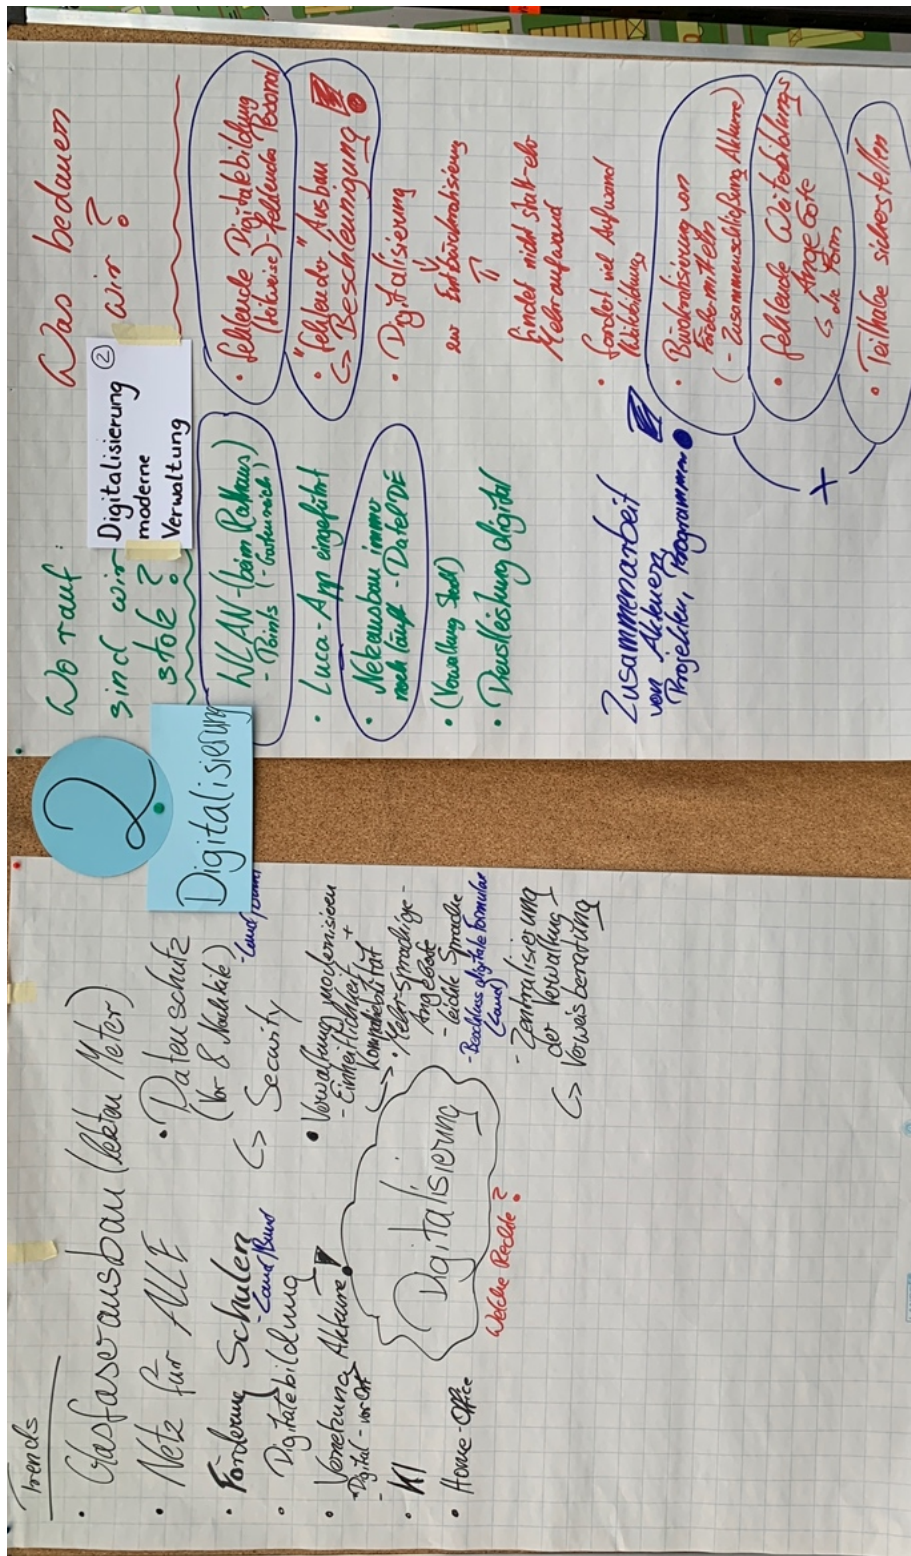 Trends
• Glasfaserausbau (letzten Meter)
• Netz für ALLE
• Förderung Schulen
- Land/Bund
• Digitalebildung
• Vernetzung Akteure
- Digital - vor Ort
• KI
• Home-Office
• Datenschutz
(Vor & Nachteile)
- Land/Bund
↳ Security
• Verwaltung modernisieren
- Einheitlichkeit +
Kompatibilität
• Mehr-Sprachige-
Angebote
- leichte Sprache
- Beschluss digitale Formulare
(Land)
- Zentralisierung
der Verwaltung -
↳ Verweisberatung
Digitalisierung
Welche Rechte?
2
Digitalisierung
Worauf
sind wir
stolz?
WLAN (beim Rathaus)
- Points
• Luca-App eingeführt
• Netzausbau immo
noch läuft - Datel DE
• (Verwaltung Stadt)
• Dienstleistung digital
Zusammenarbeit
von Akteuren,
Projekten, Programmen
Digitalisierung ②
moderne
Verwaltung
Was bedauern
wir?
• fehlende Digitalebildung
(teilweise) - fehlendes Personal
• "fehlender" Ausbau
↳ Beschleunigung
• Digitalisierung
zur Entbürokratisierung
findet nicht statt - eh
Mehraufwand
• fordert viel Aufwand
Weiterbildung
• Bürokratisierung von
Fördermitteln
(- Zusammenschließung Akteure)
• fehlende Weiterbildungs
Angebote
• Teilhabe sicherstellen
+